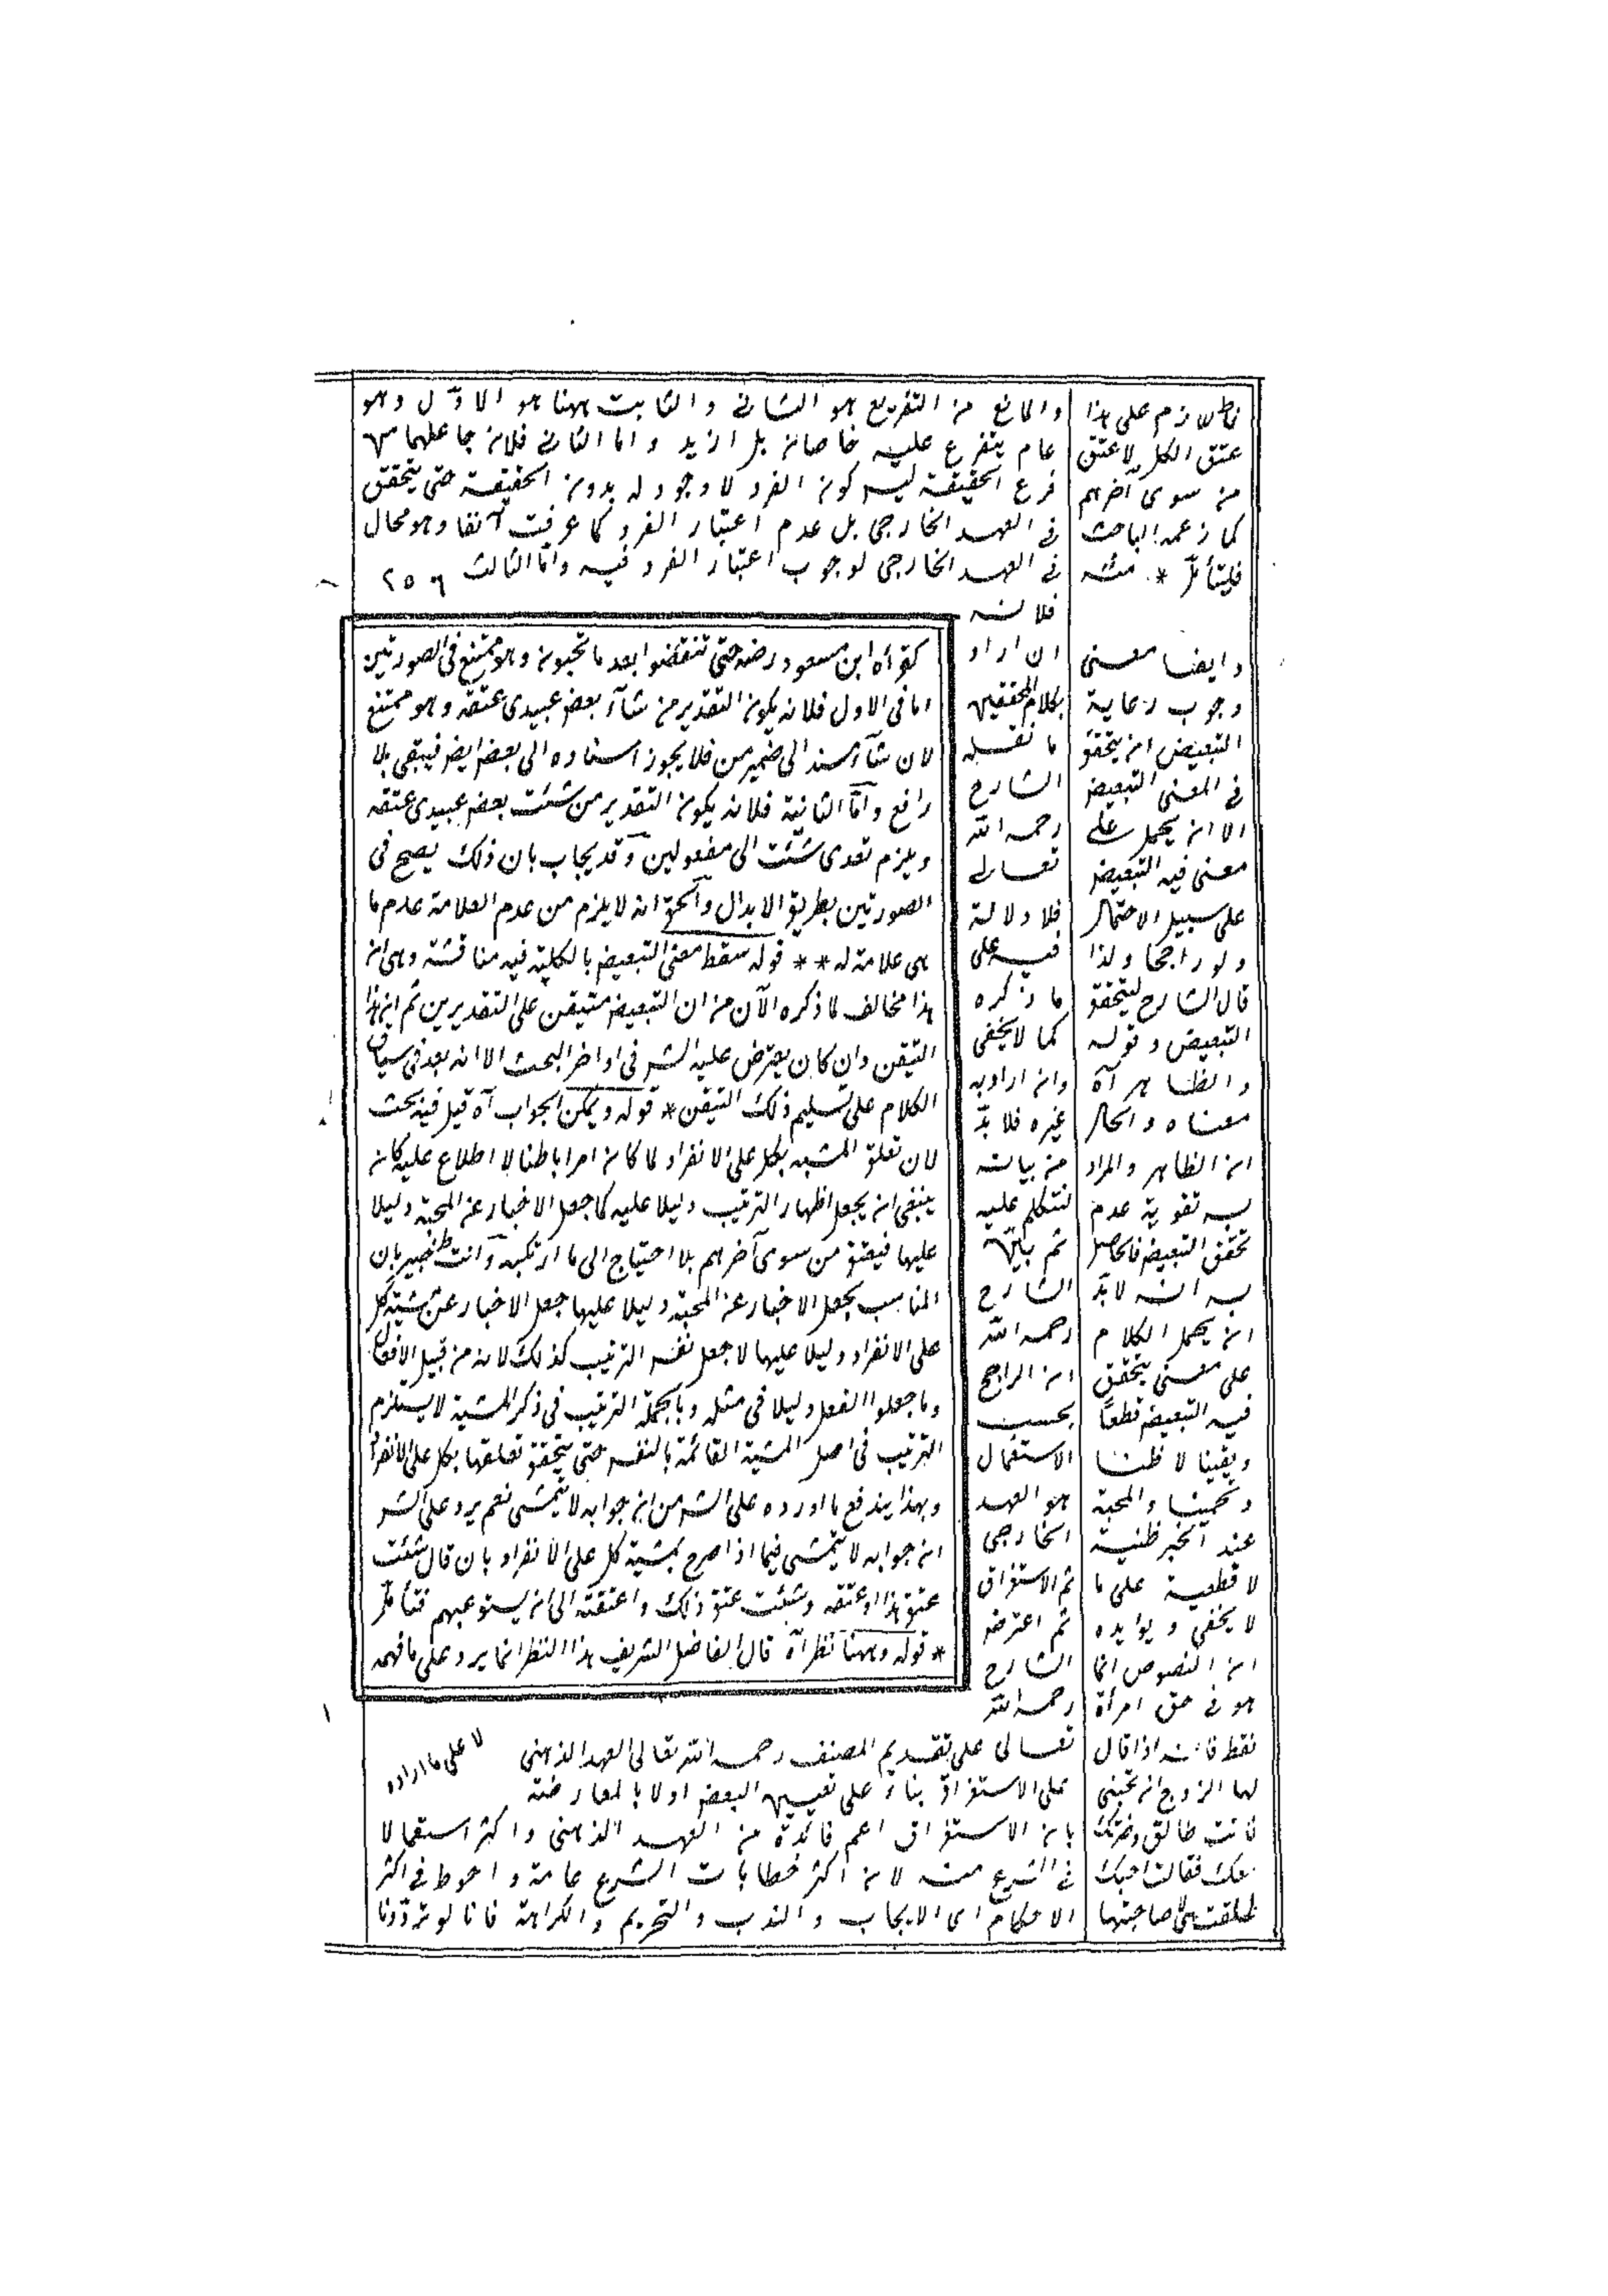 والمانع من التفريع هو الثاني والثابت ههنا هو الاول وهو
عام يتفرع عليه خاصان بل ازيد واما الثاني فلان جاعلهما
فرع الحقيقة ليس كون الفرد لا وجود له بدون الحقيقة حتى يتحقق
في العهد الخارجي بل عدم اعتبار الفرد كما عرفت آنفا وهو محال
في العهد الخارجي لوجوب اعتبار الفرد فيه واما الثالث
فلانه
ان اراد
بكلام المحققين
ما نقله
الشارح
رحمه الله
تعالى
فلا دلالة
فيه على
ما ذكره
كما لا يخفى
وان اراد به
غيره فلا بدّ
من بيانه
لنتكلم عليه
ثم بيّن
الشارح
رحمه الله
ان الراجح
بحسب
الاستعمال
هو العهد
الخارجي
ثم الاستغراق
ثم اعترض
الشارح
رحمه الله
تعالى على تقديم المصنف رحمه الله تعالى العهد الذهني
على الاستغراق بناء على تعيين البعض اولا بالمعارضة
بان الاستغراق اعم فائدة من العهد الذهني واكثر استعمالا
في الشرع منه لان اكثر خطابات الشرع عامة واحوط في اكثر
الاحكام اى الايجاب والندب والتحريم والكراهة فانا لو ترددنا
٢٥٦
كقرأة ابن مسعود رضه حتى تنفقوا بعد ما تحبون وهو ممتنع في الصورتين
اما في الاول فلانه يكون التقدير من شآء بعض عبيدى عتقه وهو ممتنع
لان شآء مسند الى ضمير من فلا يجوز اسناده الى بعض ايضا فيبقى بلا
رافع وامّا الثانية فلانه يكون التقدير من شئت بعض عبيدى عتقه
ويلزم تعدى شئت الى مفعولين وقد يجاب بان ذلك يصح في
الصورتين بطريق الابدال والحق انه لا يلزم من عدم العلامة عدم ما
هى علامة له ** قوله سقط معنى التبعيض بالكلية فيه مناقشة وهى ان
هذا مخالف لما ذكره الآن من ان التبعيض متيقن على التقديرين ثم ان هذا
التيقن وان كان يعترض عليه الشر في اواخر البحث الا انه بعد في سياق
الكلام على تسليم ذلك التيقن * قوله ويمكن الجواب آه قيل فيه بحث
لان تعلق المشية بكل على الانفراد لما كان امرا باطنا لا اطلاع عليه كان
ينبغى ان يجعل اظهار الترتيب دليلا عليه كما جعل الاخبار عن المحبة دليلا
عليها فيعتق من سوى آخرهم بلا احتياج الى ما ارتكبه وانت خبير بان
المناسب بجعل الاخبار عن المحبة دليلا عليها جعل الاخبار عن مشية كل
على الانفراد دليلا عليها لا جعل نفس الترتيب كذلك لانه من قبيل الافعال
وما جعلوا الفعل دليلا في مثله وبالجملة الترتيب في ذكر المشية لا يستلزم
الترتيب في اصل المشية القائمة بالنفس حتى يتحقق تعلقها بكل على الانفراد
وبهذا يندفع ما اورده على الشر من ان جوابه لا يتمشى نعم يرد على الشر
ان جوابه لا يتمشى فيما اذا صرح بمشية كل على الانفراد بان قال شئت
عتق هذا او عتقه وشئت عتق ذلك واعتقته الى ان يستوعبهم فتأمل
* قوله وههنا نظر آه قال الفاضل الشريف هذا النظر انما يرد على ما فهمه
لا على ما اراده
فاللازم على هذا
عتق الكل لا عتق
من سوى آخرهم
كما زعمه الباحث
فليتأمل * منه
وايضا معنى
وجوب رعاية
التبعيض ان يتحقق
في المعنى التبعيض
الا ان يحمل على
معنى فيه التبعيض
على سبيل الاحتمال
ولو راجحا ولذا
قال الشارح ليتحقق
التبعيض وقوله
والظاهر آه
معناه والحال
ان الظاهر والمراد
به تقوية عدم
تحقق التبعيض فالحاصل
به انه لا بدّ
ان يحمل الكلام
على معنى يتحقق
فيه التبعيض قطعاً
ويقينا لا ظنا
وتخمينا والمحبة
عند الخبر ظنية
لا قطعية على ما
لا يخفى ويؤيده
ان النصوص انما
هو في حق امرأة
فقط فانه اذا قال
لها الزوج ان تحبنى
فانت طالق وضرتك
معك فقالت احبك
طلقت هى لا صاحبتها